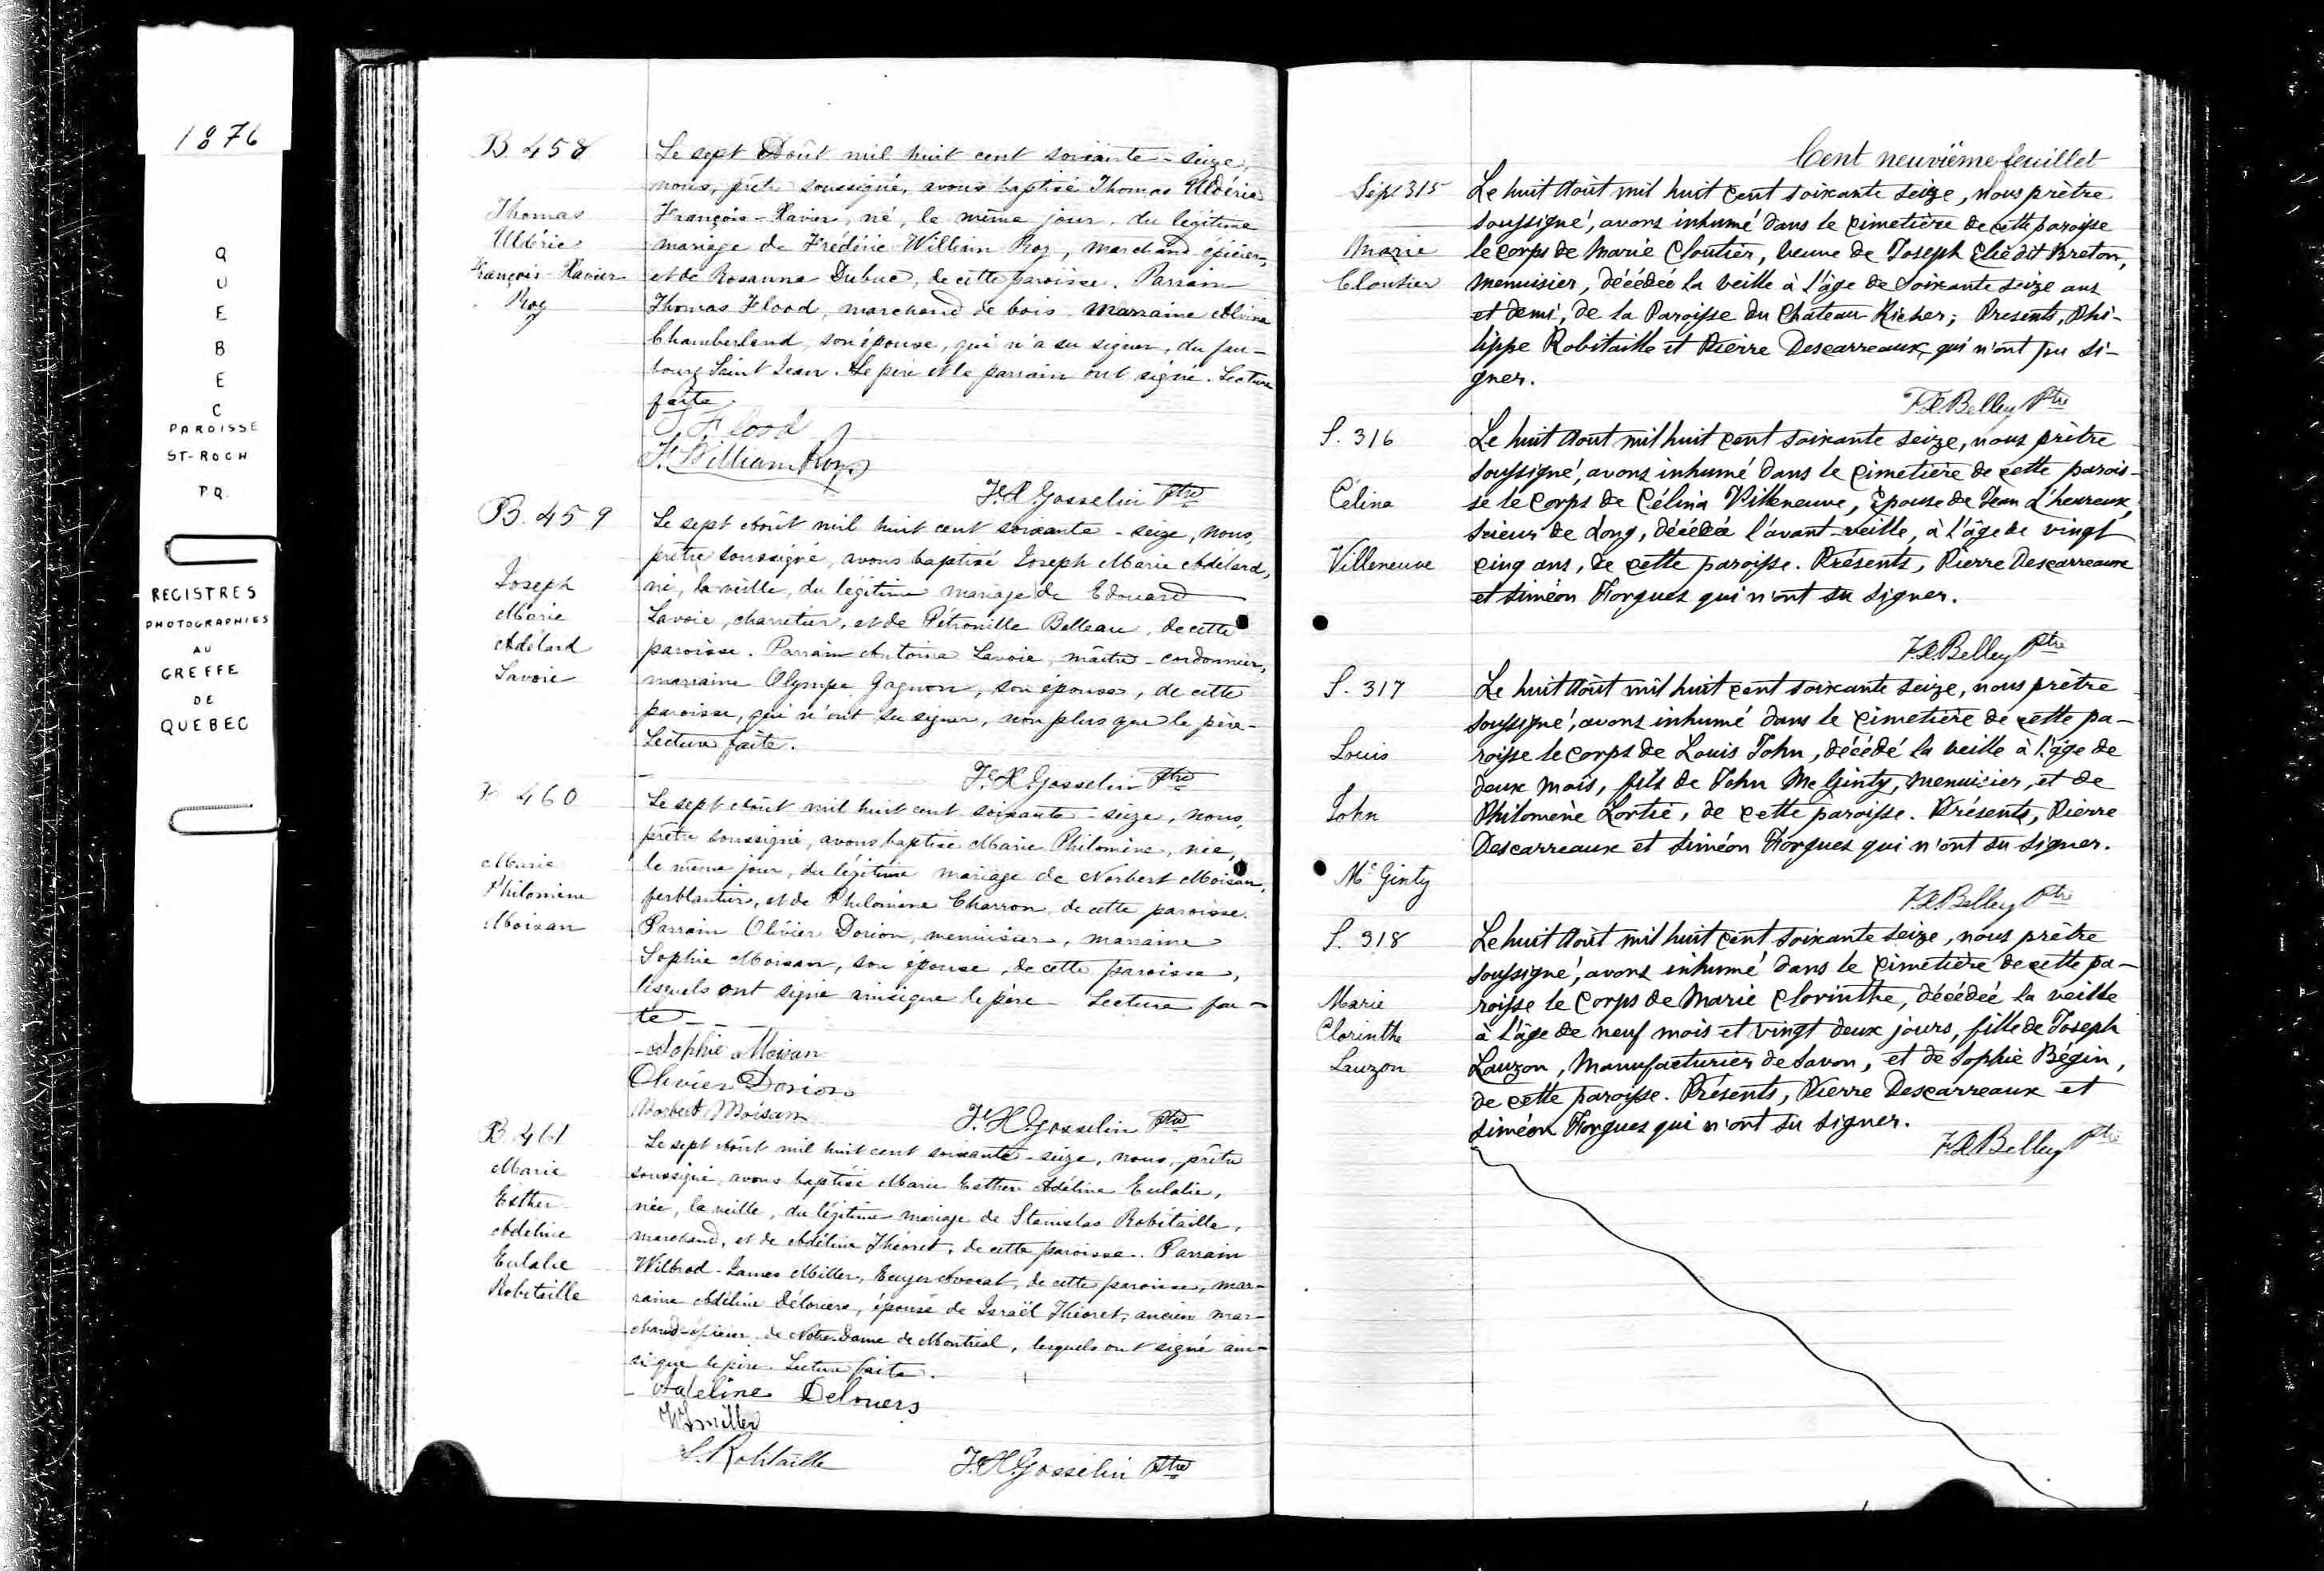 1876
QUEBEC
PAROISSE
ST-ROCH
P.Q.
REGISTRES
PHOTOGRAPHIES
AU
GREFFE
DE
QUEBEC
B. 458
Thomas
Uldéric
François-Xavier
Roy
Le sept Août mil huit cent soixante-seize,
nous, prêtre soussigné, avons baptisé Thomas Uldéric
François-Xavier, né, le même jour, du légitime
mariage de Frédéric William Roy, marchand épicier,
et de Rosanna Dubuc, de cette paroisse. Parrain
Thomas Flood, marchand de bois. Marraine Alvina
Chamberland, son épouse, qui n'a su signer, du fau-
bourg Saint Jean. Le père et le parrain ont signé. Lecture
faite.
T. Flood
F. William Roy
F. X. Gosselin Ptre
B. 459
Joseph
Marie
Adélard
Lavoie
Le sept Août mil huit cent soixante-seize, nous,
prêtre soussigné, avons baptisé Joseph Marie Adélard,
né, la veille, du légitime mariage de Edouard
Lavoie, charretier, et de Pétronille Belleau, de cette
paroisse. Parrain Antoine Lavoie, maître-cordonnier,
marraine Olympe Gagnon, son épouse, de cette
paroisse, qui n'ont su signer, non plus que le père-
Lecture faite.
F. X. Gosselin Ptre
B 460
Marie
Philomène
Moisan
Le sept Août mil huit cent soixante-seize, nous,
prêtre soussigné, avons baptisé Marie Philomène, née,
le même jour, du légitime mariage de Norbert Moisan,
ferblantier, et de Philomène Charron, de cette paroisse.
Parrain Olivier Dorion, menuisier, marraine
Sophie Moisan, son épouse, de cette paroisse,
lesquels ont signé ainsi que le père - Lecture fai-
te -
Sophie Moisan
Olivier Dorion
Norbert Moisan
F. X. Gosselin Ptre
B. 461
Marie
Esther
Adeline
Eulalie
Robitaille
Le sept Août mil huit cent soixante-seize, nous, prêtre
soussigné, avons baptisé Marie Esther Adéline Eulalie,
née, la veille, du légitime mariage de Stanislas Robitaille,
marchand, et de Adéline Théoret, de cette paroisse. Parrain
Wilbrod-James Miller, Ecuyer Avocat, de cette paroisse, mar-
raine Adéline Déloriers, épouse de Israël Théoret, ancien mar-
chand-épicier de Notre-Dame de Montréal, lesquels ont signé ain-
si que le père. Lecture faite.
Adeline Delouers
WJ Miller
S. Robitaille
F. X. Gosselin Ptre
Cent neuvième feuillet
Sép. 315
Marie
Cloutier
Le huit Août mil huit cent soixante seize, nous prêtre
soussigné, avons inhumé dans le cimetière de cette paroisse
le corps de Marie Cloutier, veuve de Joseph Elie dit Breton,
menuisier, décédée la veille à l'âge de soixante seize ans
et demi, de la Paroisse du Chateau Richer; Presents, Phi-
lippe Robitaille et Pierre Descarreaux, qui n'ont pu si-
gner.
F.X. Belley Ptre
S. 316
Célina
Villeneuve
Le huit Août mil huit cent soixante seize, nous prêtre
soussigné, avons inhumé dans le cimetière de cette parois-
se le corps de Célina Villeneuve, Epouse de Jean L'heureux,
scieur de Long, décédée l'avant-veille, à l'âge de vingt
cinq ans, de cette paroisse. Présents, Pierre Descarreaux
et Siméon Horgues qui n'ont su signer.
F.X. Belley Ptre
S. 317
Louis
John
Mc Ginty
Le huit Août mil huit cent soixante seize, nous prêtre
soussigné, avons inhumé dans le cimetière de cette pa-
roisse le corps de Louis John, décédé la veille à l'âge de
deux mois, fils de John Mc Ginty, menuisier, et de
Philomène Lortie, de cette paroisse. Présents, Pierre
Descarreaux et Siméon Horgues qui n'ont su signer.
F.X. Belley Ptre
S. 318
Marie
Clorinthe
Lauzon
Le huit Août mil huit cent soixante seize, nous prêtre
soussigné, avons inhumé dans le cimetière de cette pa-
roisse le corps de Marie Clorinthe, décédée la veille
à l'âge de neuf mois et vingt deux jours, fille de Joseph
Lauzon, Manufacturier de Savon, et de Sophie Bégin,
de cette paroisse. Présents, Pierre Descarreaux et
Siméon Horgues qui n'ont su signer.
F.X. Belley Ptre